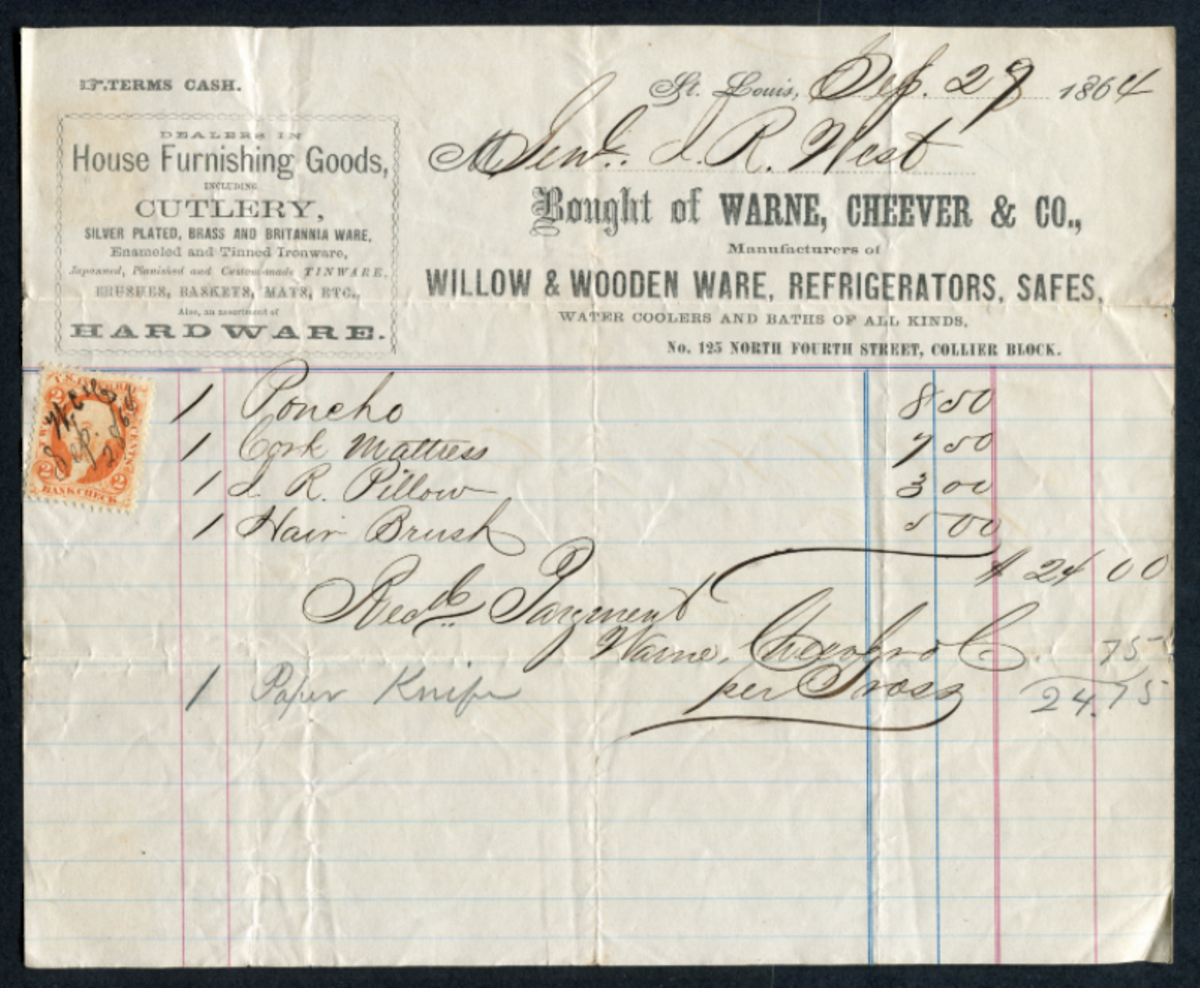 ☞TERMS CASH.
St. Louis, Sep. 29 1864
M Genl. J. R. West
DEALERS IN
House Furnishing Goods,
INCLUDING
CUTLERY,
SILVER PLATED, BRASS AND BRITANNIA WARE,
Enameled and Tinned Ironware,
Japanned, Planished and Custom-made TINWARE.
BRUSHES, BASKETS, MATS, ETC.,
Also, an assortment of
HARDWARE.
Bought of WARNE, CHEEVER & CO.,
Manufacturers of
WILLOW & WOODEN WARE, REFRIGERATORS, SAFES,
WATER COOLERS AND BATHS OF ALL KINDS,
No. 125 NORTH FOURTH STREET, COLLIER BLOCK.
U.S. INTER. REV.
TWO CENTS
2 2
BANK CHECK
Sep. 28 64
1 Poncho 8 50
1 Cork Mattress 7 50
1 I R. Pillow 3 00
1 Hair Brush 5 00
$ 24 00
Recd. Payment
Warne, Cheever & Co. 75
1 Paper Knife
per Gross 24.75